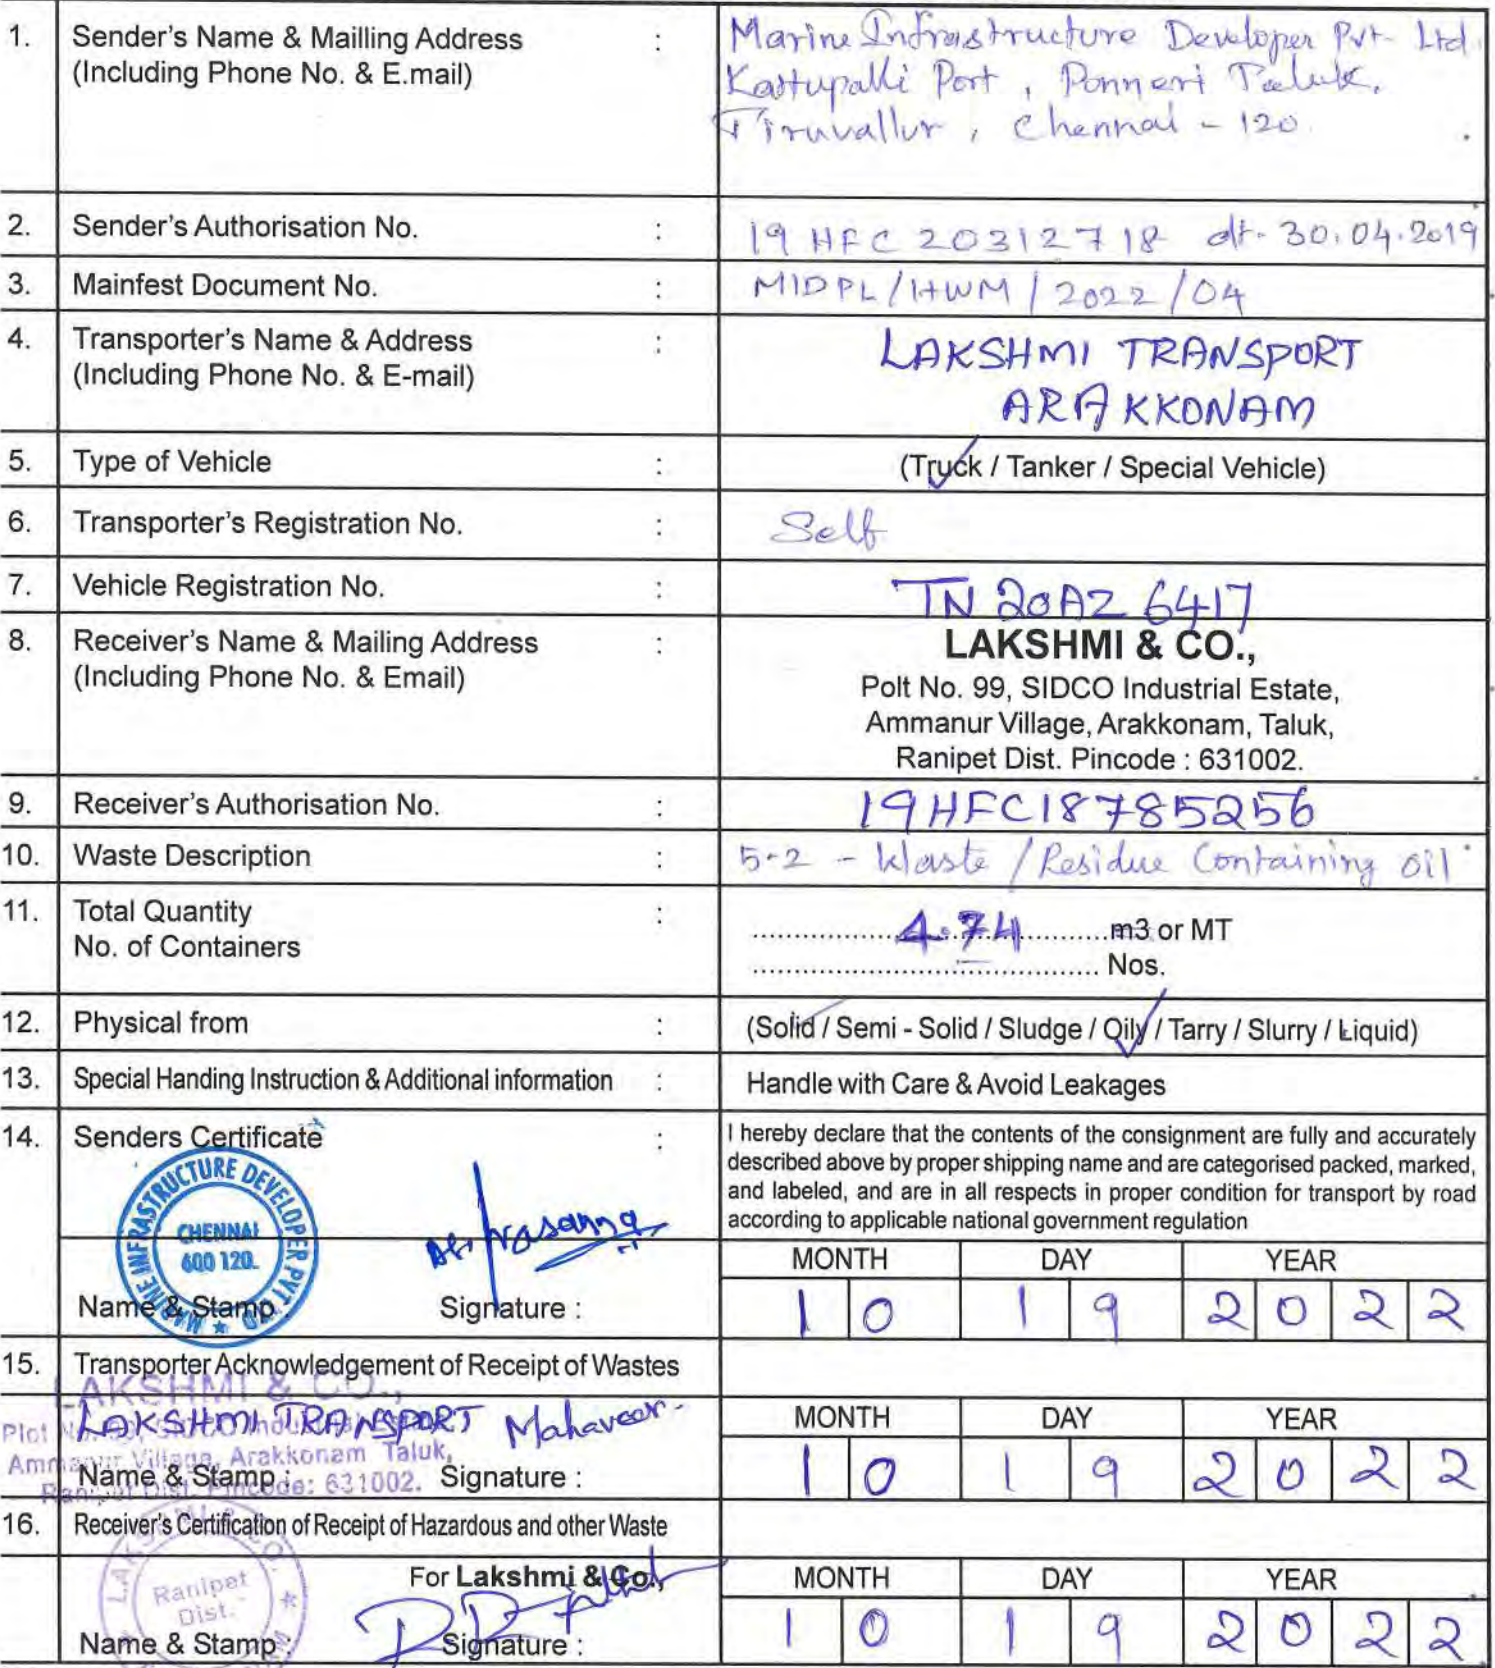 1. Sender's Name & Mailling Address : Marine Infrastructure Developer Pvt- Ltd.
(Including Phone No. & E.mail) Kattupalli Port, Ponneri Taluk,
Tiruvallur, Chennai - 120.
2. Sender's Authorisation No. : 19 HFC 20312718 dt- 30.04.2019
3. Mainfest Document No. : MIDPL/HWM/2022/04
4. Transporter's Name & Address : LAKSHMI TRANSPORT
(Including Phone No. & E-mail) ARAKKONAM
5. Type of Vehicle : (Truck / Tanker / Special Vehicle)
6. Transporter's Registration No. : Self
7. Vehicle Registration No. : TN 20AZ 6417
8. Receiver's Name & Mailing Address : LAKSHMI & CO.,
(Including Phone No. & Email) Polt No. 99, SIDCO Industrial Estate,
Ammanur Village, Arakkonam, Taluk,
Ranipet Dist. Pincode : 631002.
9. Receiver's Authorisation No. : 19HFC18785256
10. Waste Description : 5-2 - Waste / Residue Containing oil
11. Total Quantity : 4.74 m3 or MT
No. of Containers Nos.
12. Physical from : (Solid / Semi - Solid / Sludge / Oily / Tarry / Slurry / Liquid)
13. Special Handing Instruction & Additional information : Handle with Care & Avoid Leakages
14. Senders Certificate : I hereby declare that the contents of the consignment are fully and accurately
described above by proper shipping name and are categorised packed, marked,
and labeled, and are in all respects in proper condition for transport by road
according to applicable national government regulation
MARINE INFRASTRUCTURE DEVELOPER PVT LTD
CHENNAI
600 120.
Prasanna
MONTH DAY YEAR
Name & Stamp Signature : 10 19 2022
15. Transporter Acknowledgement of Receipt of Wastes
LAKSHMI & CO.,
LAKSHMI TRANSPORT Mahaveer MONTH DAY YEAR
Plot
Ammanur Village, Arakkonam Taluk,
Name & Stamp : Signature : 10 19 2022
Ranipet Dist. Pincode: 631002.
16. Receiver's Certification of Receipt of Hazardous and other Waste
For Lakshmi & Co., MONTH DAY YEAR
LAKSHMI & CO.
Ranipet
Dist.
Name & Stamp : Signature : 10 19 2022